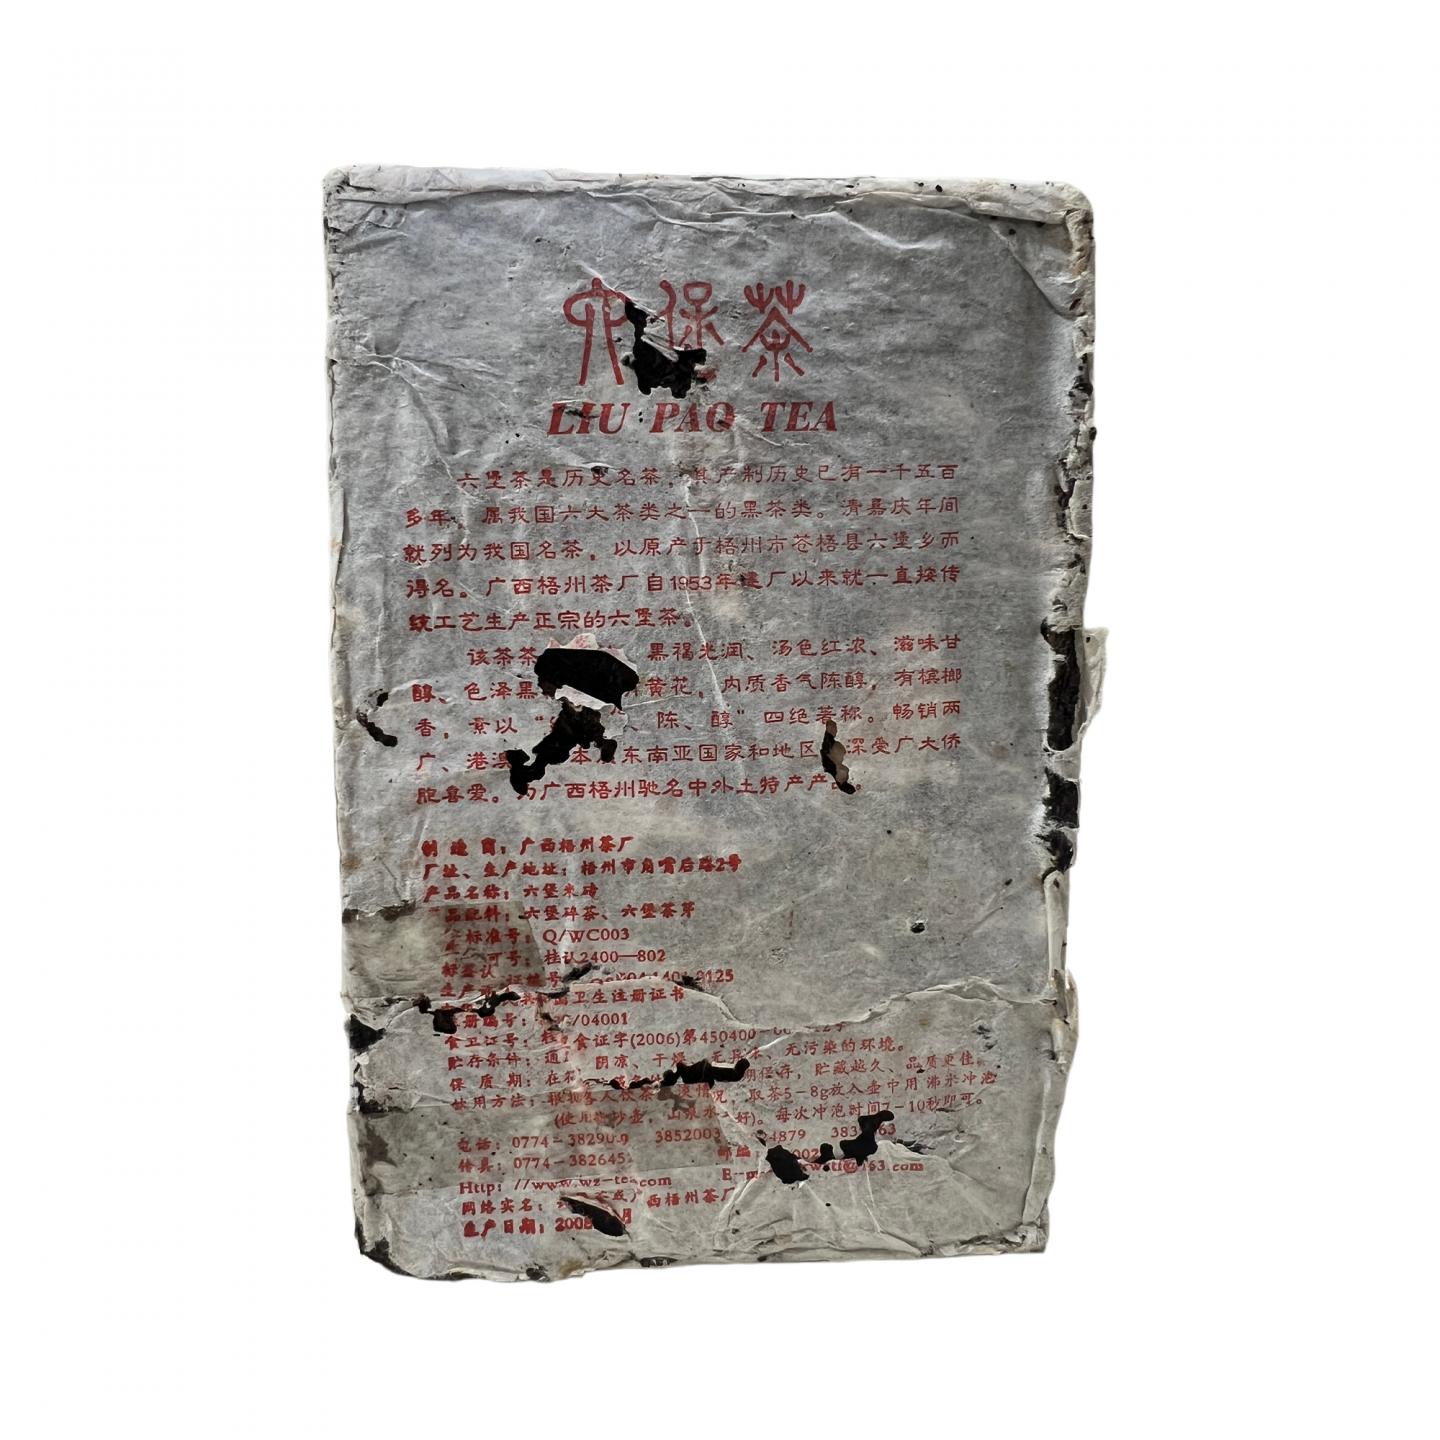 六堡茶
LIU PAO TEA
六堡茶是历史名茶，其产制历史已有一千五百
多年，属我国六大茶类之一的黑茶类。清嘉庆年间
就列为我国名茶，以原产于梧州市苍梧县六堡乡而
得名。广西梧州茶厂自1953年建厂以来就一直按传
统工艺生产正宗的六堡茶。
该茶茶 黑褐光润、汤色红浓、滋味甘
醇、色泽黑 黄花，内质香气陈醇，有槟榔
香，素以“ 、陈、醇”四绝著称。畅销两
广、港澳 本 东南亚国家和地区 深受广大侨
胞喜爱。为广西梧州驰名中外土特产产品。
制 造 商：广西梧州茶厂
厂址、生产地址：梧州市角嘴后路2号
产品名称：六堡米砖
品配料：六堡碎茶、六堡茶芽
标准号：Q/WC003
可号：桂认2400—802
标签认
证编号 0125
生产 国卫生注册证书
册编号： /04001
食卫证号：桂 食证字(2006)第450400-
贮存条件：通 阴凉、干燥、无异味、无污染的环境。
保 质 期：在符 期保存，贮藏越久、品质更佳。
饮用方法：根据各人饮茶 情况，取茶5-8g放入壶中用沸水冲泡
(使用紫砂壶，山泉水 好)。每次冲泡时间7-10秒即可。
电话：0774-38290 9 3852003 4879 383 63
传真：0774-3826452 邮编： 002
Http：//www.wz-tea.com E-m @163.com
网络实名： 茶或广西梧州茶厂
生产日期：2008 月